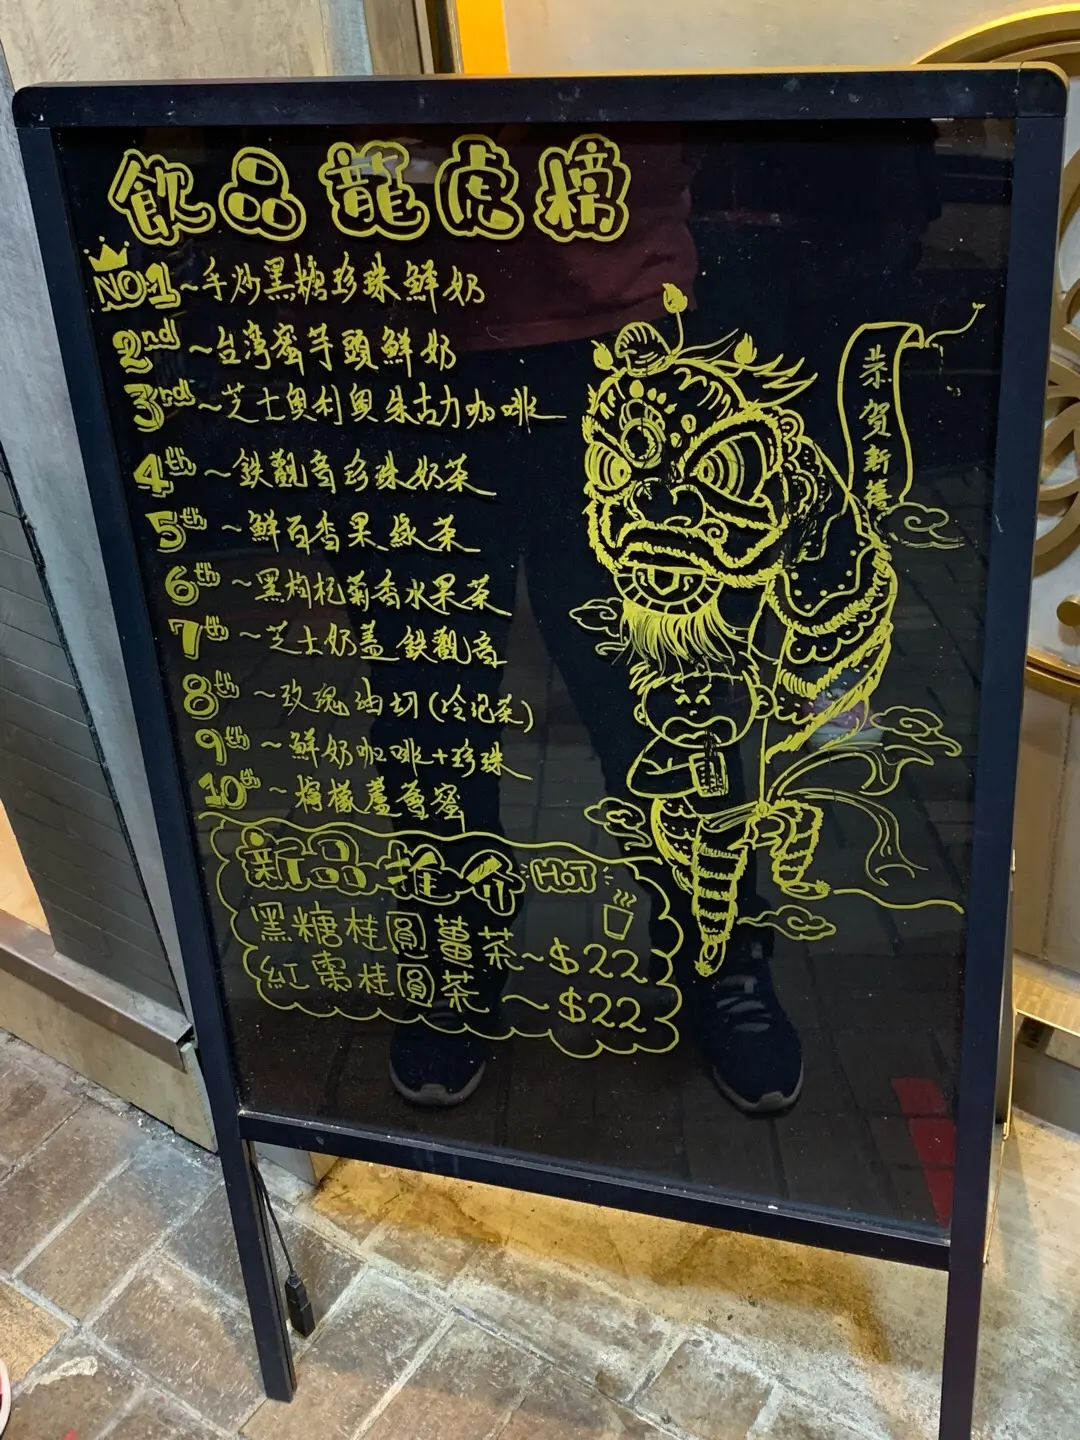 飲品龍虎榜
NO.1~手炒黑糖珍珠鮮奶
2nd~台灣蜜芋頭鮮奶
3rd~芝士奧利奧朱古力咖啡
4th~鉄觀音珍珠奶茶
5th~鮮百香果綠茶
6th~黑枸杞菊香水果茶
7th~芝士奶盖鉄觀音
8th~玫瑰油切(冷泡茶)
9th~鮮奶咖啡+珍珠
10th~檸檬蘆薈蜜
恭賀新禧
新品推介 HOT
黑糖桂圓薑茶~$22
紅棗桂圓茶~$22